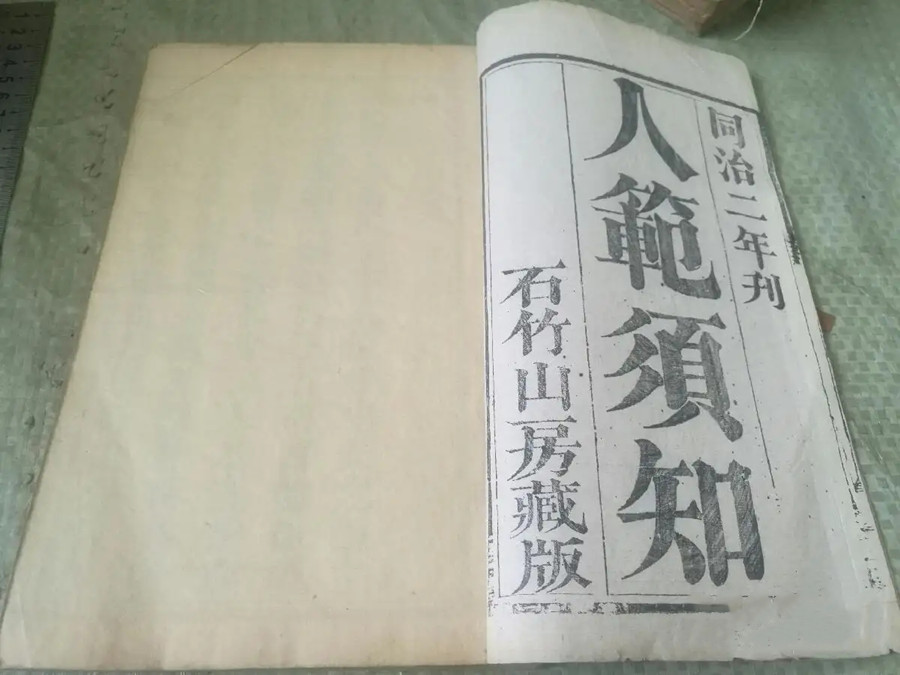 同治二年刊
人範須知
石竹山房藏版